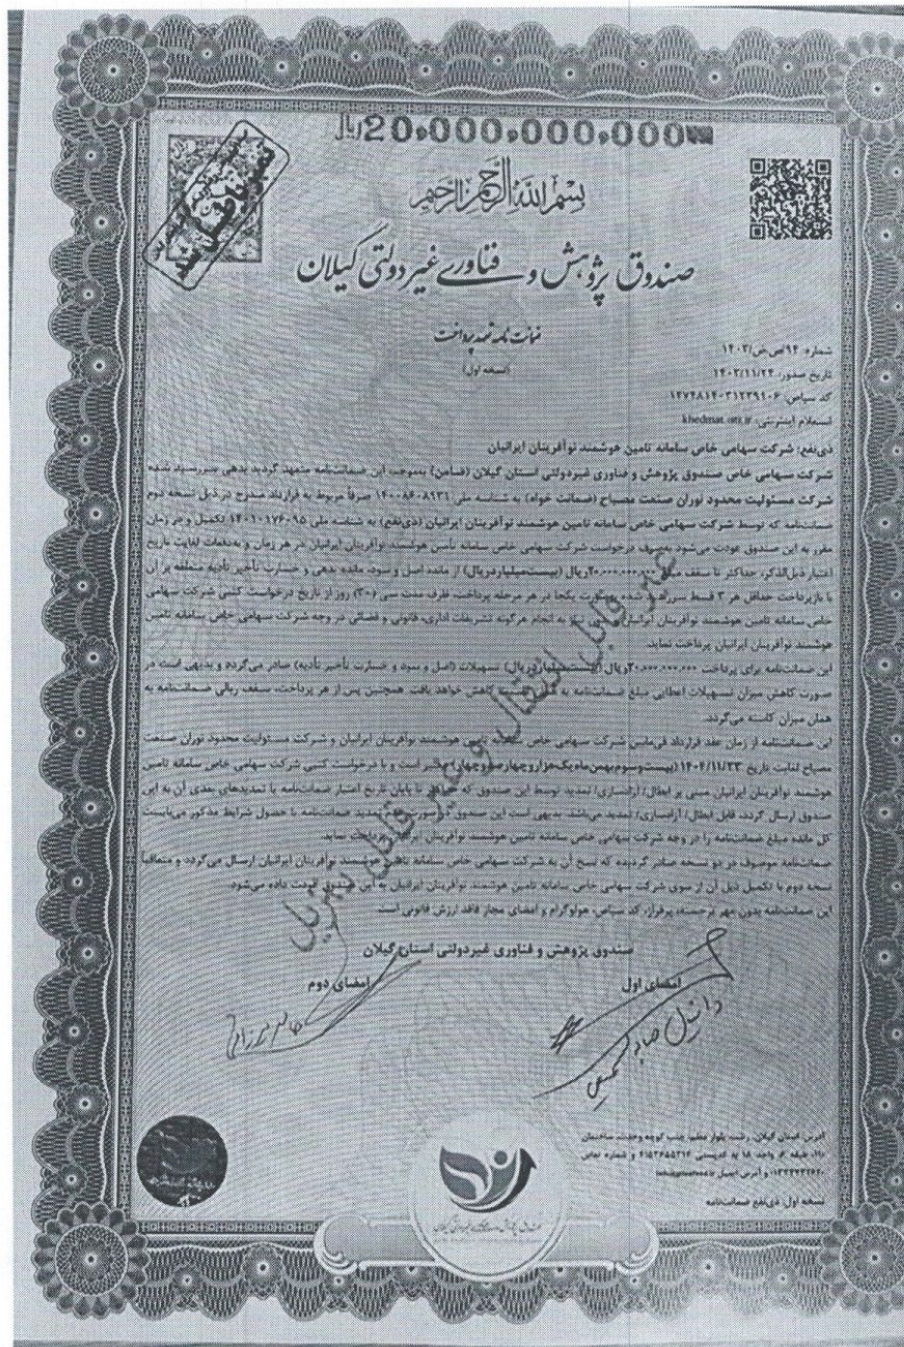 20,000,000,000 ریال
بسم الله الرحمن الرحیم
صندوق پژوهش و فناوری غیردولتی گیلان
ضمانت نامه تعهد پرداخت
(نسخه اول)
شماره: ۹۲/ص.ض/۱۴۰۳
تاریخ صدور: ۱۴۰۳/۱۱/۲۴
کد سپاص:
استعلام اینترنتی:
ذی‌نفع: شرکت سهامی خاص سامانه تامین هوشمند نوآفرینان ایرانیان
شرکت سهامی خاص صندوق پژوهش و فناوری غیردولتی استان گیلان (ضامن) بموجب این ضمانت‌نامه متعهد گردید بدهی سررسید شده
شرکت مسئولیت محدود توران صنعت مصباح (ضمانت خواه) به شناسه ملی ۱۴۰۰۸۶۰۸۹۳۱ صرفاً مربوط به قرارداد مندرج در ذیل نسخه دوم
ضمانت‌نامه که توسط شرکت سهامی خاص سامانه تامین هوشمند نوآفرینان ایرانیان (ذی‌نفع) به شناسه ملی ۱۴۰۱۰۱۷۶۰۹۵ تکمیل و در زمان
مقرر به این صندوق عودت می‌شود درخواست شرکت سهامی خاص سامانه تأمین هوشمند نوآفرینان ایرانیان در هر زمان و به‌دفعات لغایت تاریخ
اعتبار ذیل‌الذکر، حداکثر تا سقف ۲۰.۰۰۰.۰۰۰.۰۰۰ ریال (بیست‌میلیارد ریال) از مانده اصل و سود، مانده بدهی و خسارت تأخیر تأدیه متعلقه بر آن
با بازپرداخت حداقل هر ۳ قسط سررسید شده یکجا در هر مرحله پرداخت، ظرف مدت سی (۳۰) روز از تاریخ درخواست کتبی شرکت سهامی
خاص سامانه تامین هوشمند نوآفرینان ایرانیان نیاز به انجام هرگونه تشریفات اداری، قانونی و قضائی در وجه شرکت سهامی خاص سامانه تامین
هوشمند نوآفرینان ایرانیان پرداخت نماید.
این ضمانت‌نامه برای پرداخت ۲۰.۰۰۰.۰۰۰.۰۰۰ ریال (بیست‌میلیارد ریال) تسهیلات (اصل و سود و خسارت تأخیر تأدیه) صادر می‌گردد و بدیهی است در
صورت کاهش میزان تسهیلات اعطایی مبلغ ضمانت‌نامه به کاهش خواهد یافت. همچنین پس از هر پرداخت، سقف ریالی ضمانت‌نامه به
همان میزان کاسته می‌گردد.
این ضمانت‌نامه از زمان عقد قرارداد فی‌مابین شرکت سهامی خاص سامانه تامین هوشمند نوآفرینان ایرانیان و شرکت مسئولیت محدود توران صنعت
مصباح لغایت تاریخ ۱۴۰۴/۱۱/۲۳ (بیست‌وسوم بهمن‌ماه یک‌هزاروچهارصدوچهار) معتبر است و با درخواست کتبی شرکت سهامی خاص سامانه تامین
هوشمند نوآفرینان ایرانیان مبنی بر ابطال/ آزادسازی/ تمدید توسط این صندوق که تا پایان تاریخ اعتبار ضمانت‌نامه یا تمدیدهای بعدی آن به این
صندوق ارسال گردد، قابل ابطال/ آزادسازی/ تمدید می‌باشد. بدیهی است این صندوق در صورت تمدید ضمانت‌نامه با حصول شرایط مذکور می‌بایست
کل مانده مبلغ ضمانت‌نامه را در وجه شرکت سهامی خاص سامانه تامین هوشمند نوآفرینان ایرانیان پرداخت نماید.
ضمانت‌نامه موصوف در دو نسخه صادر گردیده که نسخ آن به شرکت سهامی خاص سامانه تامین هوشمند نوآفرینان ایرانیان ارسال می‌گردد و متعاقبا
نسخه دوم با تکمیل ذیل آن از سوی شرکت سهامی خاص سامانه تامین هوشمند نوآفرینان ایرانیان به این صندوق عودت داده می‌شود.
این ضمانت‌نامه بدون مهر برجسته، پرفراژ، کد سپاص، هولوگرام و امضای مجاز فاقد ارزش قانونی است.
غیر قابل انتقال و غیر قابل تنزیل
صندوق پژوهش و فناوری غیردولتی استان گیلان
امضای اول
امضای دوم
نسخه اول: ذی‌نفع ضمانت‌نامه